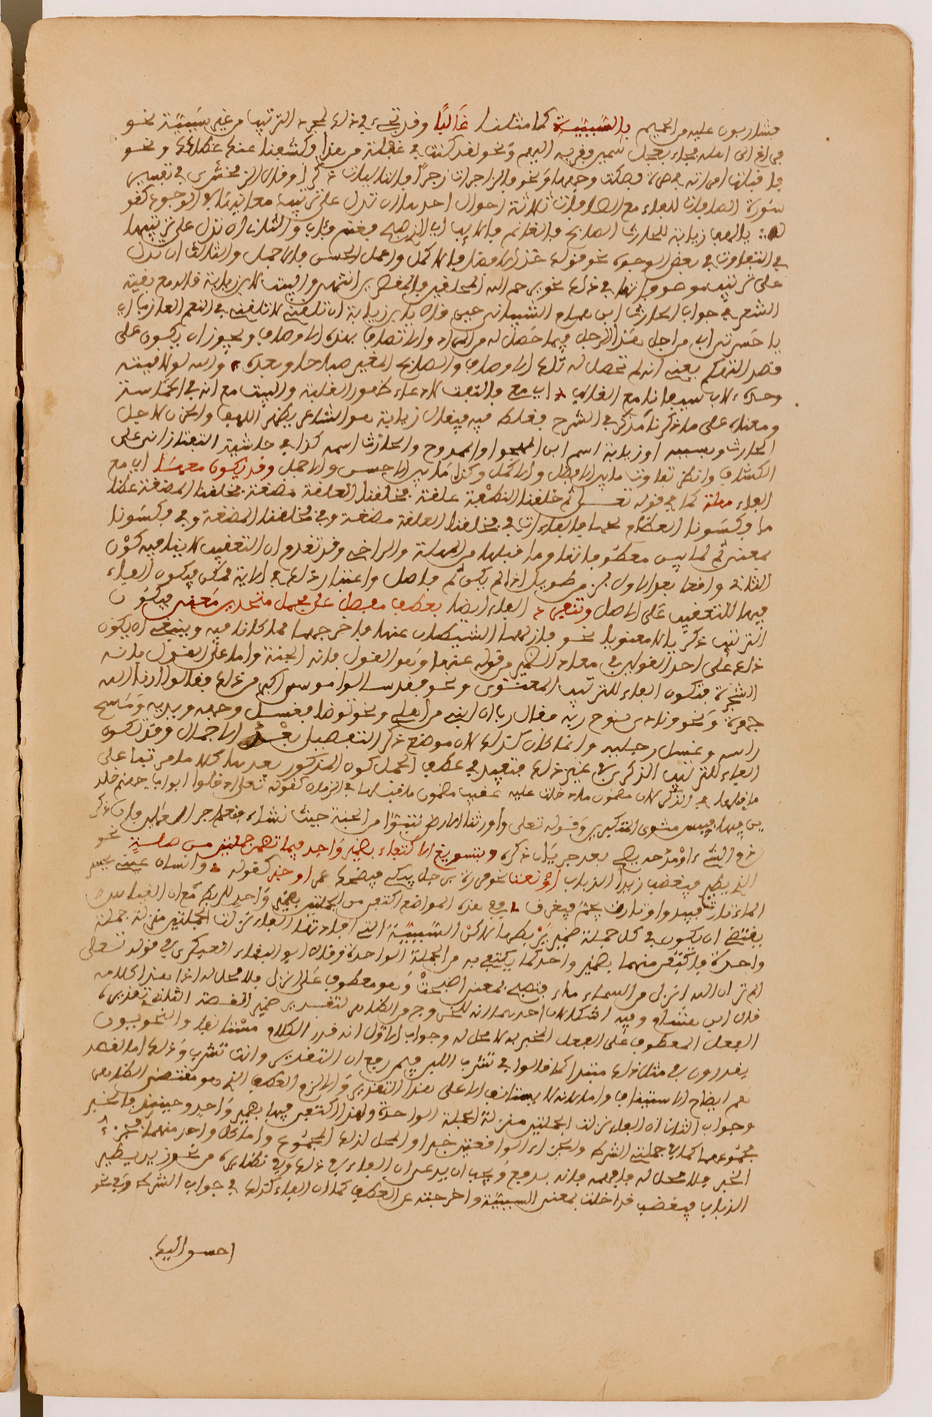 فشاربون عليه من الحميم بالسببية كما مثلنا غالبا وقد تجيء في ذلك لمجرد الترتيب من غير سببية نحو
فراغ إلى أهله فجاء بعجل سمين فقربه إليهم ونحو لقد كنت في غفلة من هذا فكشفنا عنك غطاءك ونحو
فأقبلت امرأته في صرة فصكت وجهها ونحو فالزاجرات زجرا فالتاليات ذكرا وقال الزمخشري في تفسير
سورة الصافات للفاء مع الصفات ثلاثة أحوال أحدها أن تدل على ترتيب معانيها في الوجود كقوله
يا لهف زيابة للحارث الصابح فالغانم فالآيب أي الذي صبح فغنم فآب والثاني أن تدل على ترتيبها
في التفاوت في بعض الوجوه نحو قولك خذ الأفضل فالأكمل واعمل الأحسن فالأجمل والثالث أن تدل
على ترتيب موصوفاتها في ذلك نحو رحم الله المحلقين فالمقصرين انتهى والبيت لابن زيابة قاله مع بقية
الشعر في جواب الحارث ابن همام الشيباني حين قال يا ابن زيابة إن تلقني لا تلقني في النعم العازب أي
يا حسرتي أبي من أجل هذا الرجل فيما حصل له من المراد والاتصاف بهذه الأوصاف ويجوز أن يكون على
قصد التهكم يعني أنه لم تحصل له تلك الأوصاف والصابح المغير صباحا وبعده والله لو لاقيته
وحده لآب سيفانا مع الغالب أي مع
ومعناه على ما ذكرنا
الحارث وبسببه أو زيابة اسم أبي المهجو أو الممدوح والحارث اسمه كذا في حاشية التفتازاني على
الكشاف وانظر تفاوت ما بين الأفضل والأكمل وكذا ما بين الأحسن والأجمل وقد يكون معها أي مع
الفاء مهلة كما في قوله تعالى ثم خلقنا النطفة علقة فخلقنا العلقة مضغة فخلقنا المضغة عظا
ما فكسونا العظام لحما فالفاءات في فخلقنا العلقة مضغة وفي فخلقنا المضغة وفي فكسونا
بمعنى ثم لما بين معطوفاتها وما قبلها من المهلة والتراخي وقد تقدم أن التعقيب لا ينافيه كون
الثاني واقعا بعد الأول في زمن طويل إذا لم يكن ثم فاصل واعتبار ذلك في الآية ممكن فيكون الفاء
فيها للتعقيب على الأصل وتنفرد الفاء أيضا بعطف مفصل على مجمل متحدين معنى فيكون
الترتيب ذكريا لا معنويا نحو فأزلهما الشيطان عنها فأخرجهما مما كانا فيه وينبغي أن يكون
ذلك على أحد القولين في معاد الضمير من قوله عنها وهو القول بأنه الجنة وأما على القول بأنه
الشجرة فتكون الفاء للترتيب المعنوي ونحو فقد سألوا موسى أكبر من ذلك فقالوا أرنا الله
جهرة ونحو ونادى نوح ربه فقال رب إن ابني من أهلي ونحو توضأ فغسل وجهه ويديه ومسح
رأسه وغسل رجليه وإنما كان كذلك لأن موضع ذكر التفصيل بعد الإجمال وقد تكون
الفاء للترتيب الذكري في غير ذلك فتفيد في عطف الجمل كون المذكور بعدها كلاما مرتبا على
ما قبلها في الذكر لأن مضمون ما دخلت عليه عقيب مضمون ما قبلها في الزمان كقوله تعالى ادخلوا أبواب جهنم خالد
ين فيها فبيس مثوى المتكبرين وقوله تعالى وأورثنا الأرض نتبوأ من الجنة حيث نشاء فنعم أجر العاملين فإن ذكر
ذم الشيء أو مدحه يصح بعد جري ذكره وبتسويغ الاكتفاء بضمير واحد فيما تضمن جملتين من صلة نحو
الذي يطير فيغضب زيد الذباب أو نعت نحو مررت برجل يبكي فيضحك عمر أو خبر كقوله وإنسان عيني يحسر
الماء تارة فيبدو وتارات يجم فيغرق ففي هذه المواضع اكتفي من الجملتين بضمير واحد للربط مع أن القياس
يقتضي أن يكون في كل جملة ضمير يربطها لكن السببية التي أفادتها الفاء نزلت الجملتين منزلة جملة
واحدة فاكتفي منهما بضمير واحد كما يكتفى به من الجملة الواحدة وقال أبو البقاء العكبري في قوله تعالى
ألم تر أن الله أنزل من السماء ماء فتصبح بمعنى أصبحت وهو معطوف على أنزل فلا محل له إذا هذا كلامه
قال ابن هشام وفيه إشكالان أحدهما أنه لا محوج في الظاهر لتقدير ضمير القصة الثاني تقديره
الفعل المعطوف على الفعل المخبر به لا محل له وجواب الأول أنه قدر الكلام مستأنفا والنحويون
يقدرون في مثل ذلك مبتدأ كما قالوا في تشرب اللبن فيمن رفع إن التقدير وأنت تشرب وذلك إما لقصد
هم إيضاح الاستيناف وإما لأنه لا يستأنف إلا على هذا التقدير وإلا لزم العطف الذي هو مقتضى الظاهر
وجواب الثاني أن الفاء نزلت الجملتين منزلة الجملة الواحدة ولهذا اكتفي فيها بضمير واحد وحينئذ فالخبر
مجموعهما كما في جملتي الشرط والجزاء الواقعتين خبرا والمحل لذلك المجموع وأما كل واحد منهما فجزء
الخبر فلا محل له فافهمه فإنه بديع ويجب أن يدعى أن الفاء في ذلك وفي نظائره من نحو زيد يطير
الذباب فيغضب قد أخلصت لمعنى السببية وأخرجت عن العطف كما أن الفاء كذلك في جواب الشرط وفي نحو
أحسن إليك